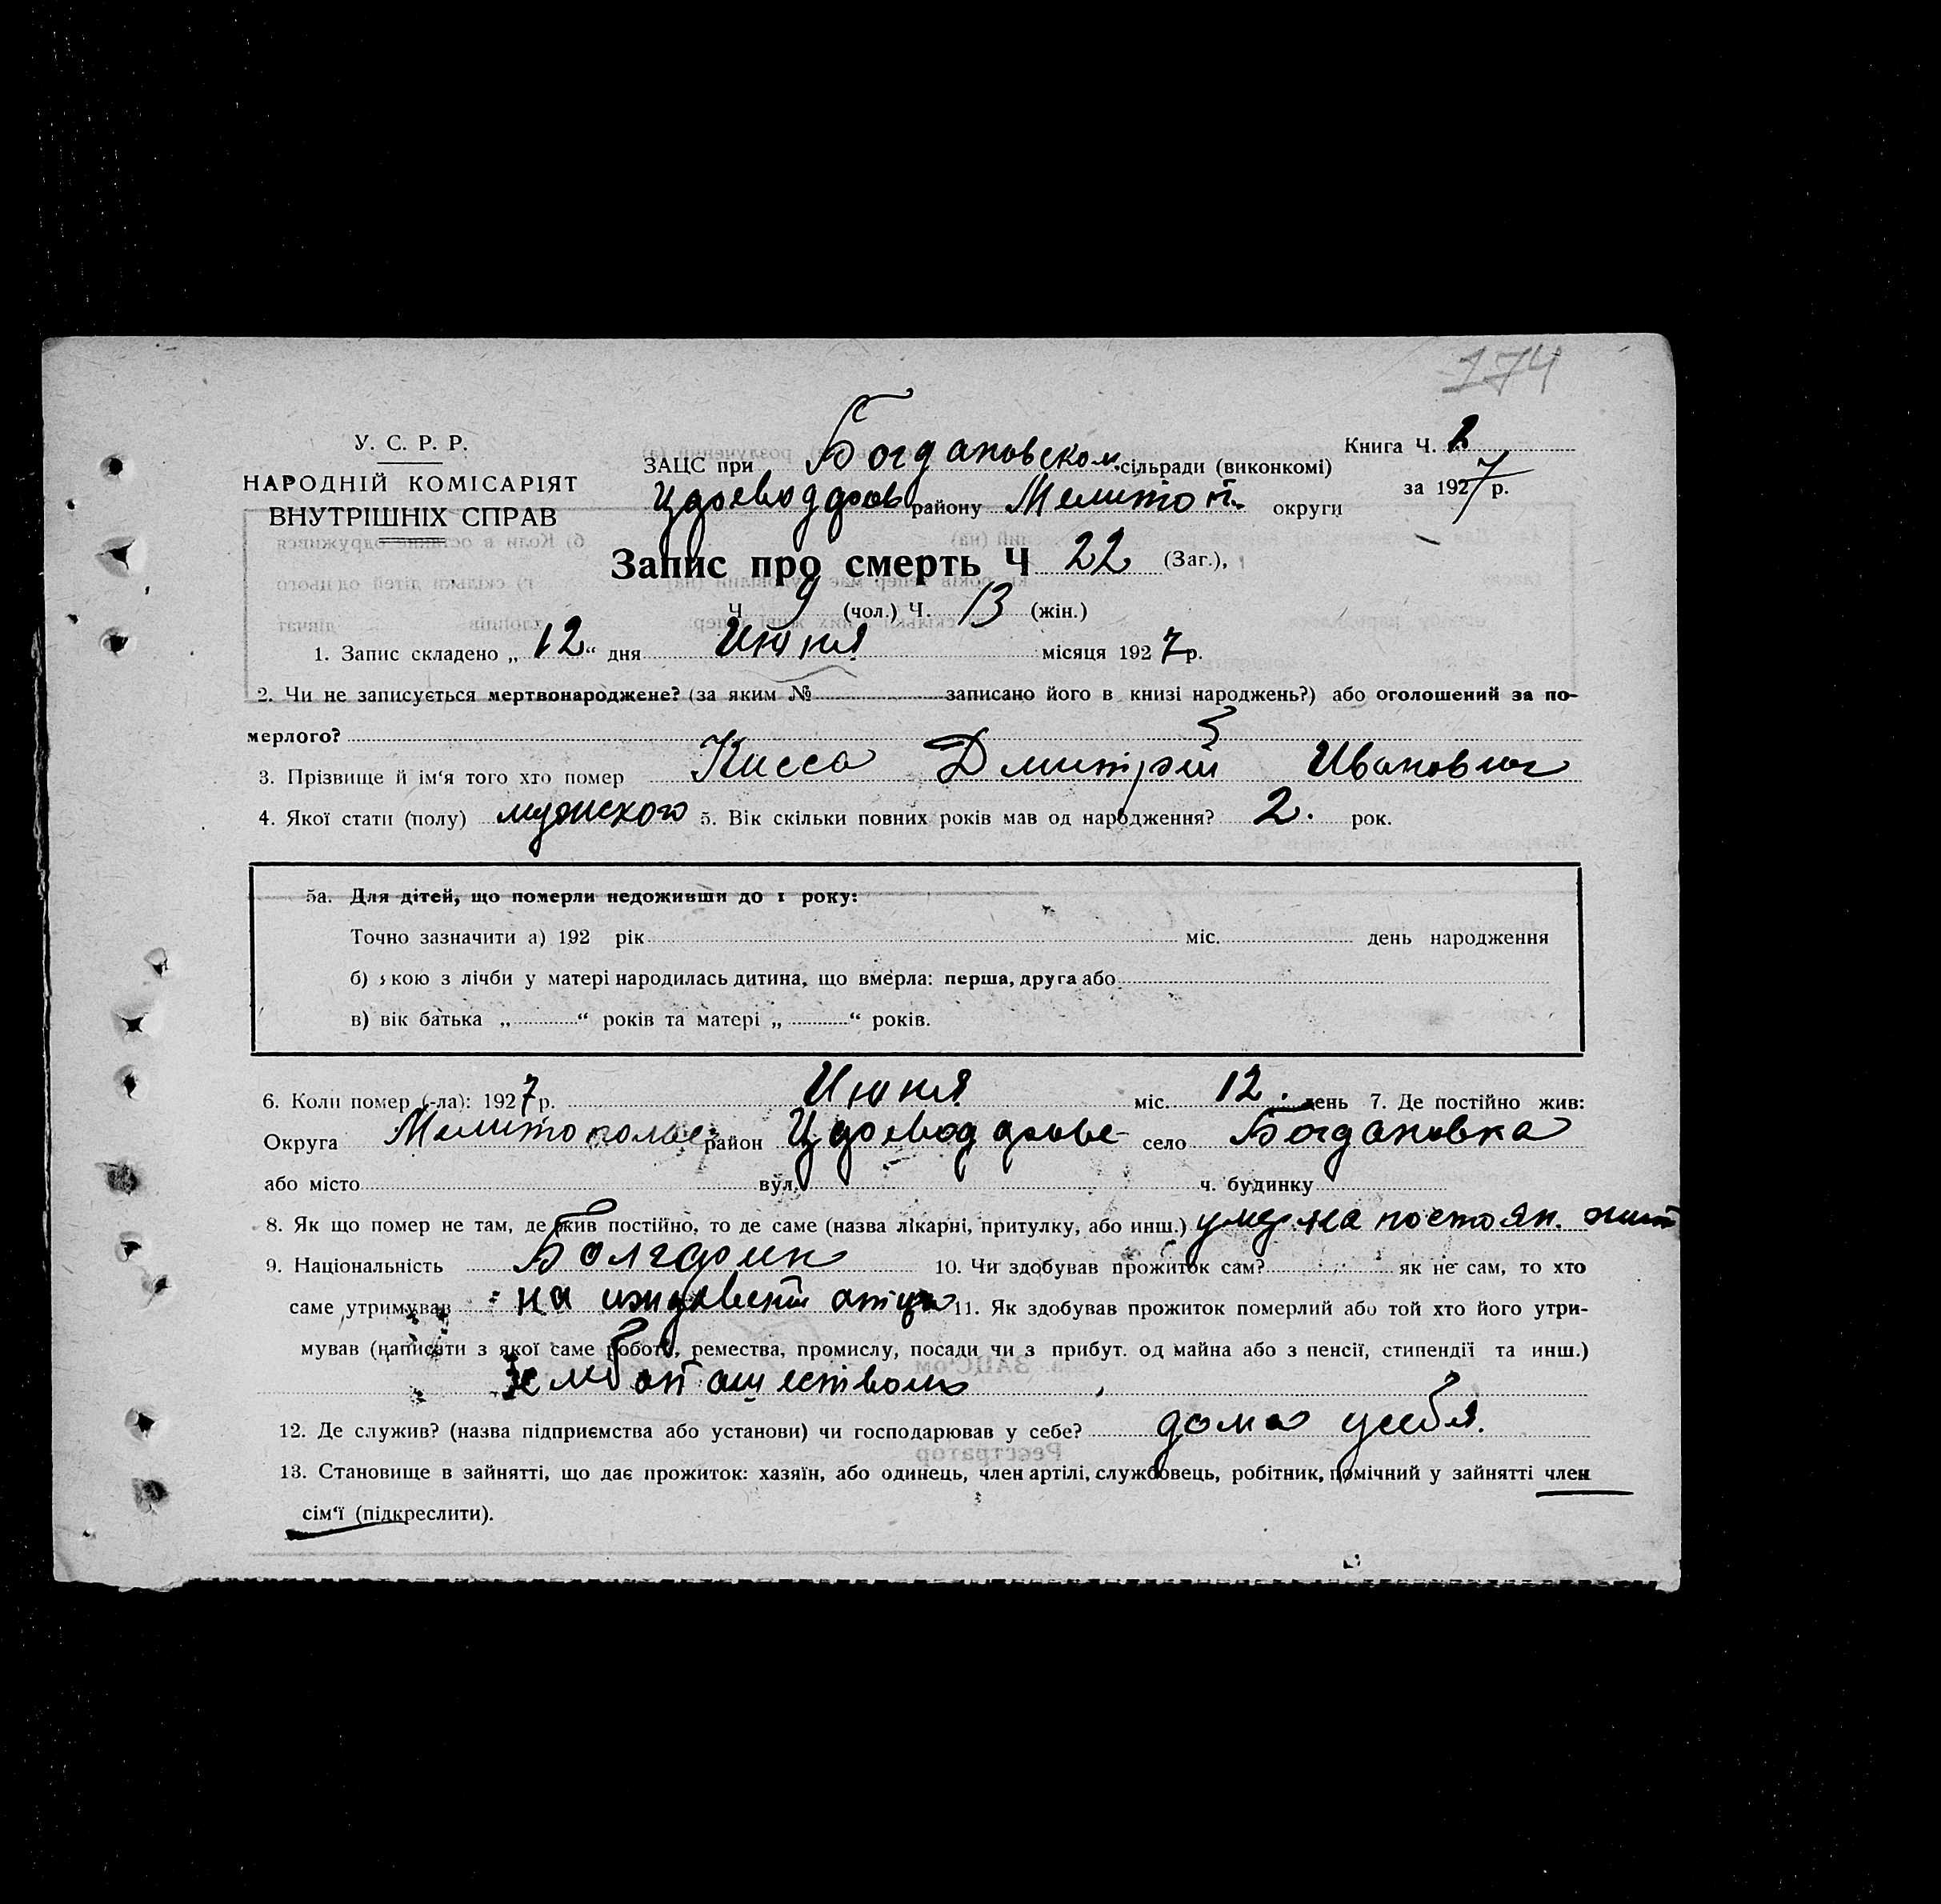 174
У. С. Р. Р.
НАРОДНІЙ КОМІСАРІЯТ
ВНУТРІШНІХ СПРАВ
ЗАЦС при Богдановском сільради (виконкомі)
Книга Ч.
Цареводаров району Мелитоп. округи
за 1927 р.
Запис про смерть Ч 22 (Заг.),
Ч 9 (чол.) Ч. 13 (жін.)
1. Запис складено „ 12 “ дня Июня місяця 1927 р.
2. Чи не записується мертвонароджене? (за яким № записано його в книзі народжень?) або оголошений за по-
мерлого?
3. Прізвище й ім‘я того хто помер Кисса Дмитрий Иванович
4. Якої стати (полу) мужского 5. Вік скільки повних років мав од народження? 2. рок.
5а. Для дітей, що померли недоживши до 1 року:
Точно зазначити а) 192 рік міс. день народження
б) кою з лічби у матері народилась дитина, що вмерла: перша, друга або
в) вік батька „ “ років та матері „ “ років.
6. Коли помер (-ла): 1927 р. Июня міс. 12. день 7. Де постійно жив:
Округа район село Богдановка
або місто вул. ч. будинку
8. Як що помер не там, де жив постійно, то де саме (назва лікарні, притулку, або инш.) умер на постоян. жит
9. Національність Болгарин 10. Чи здобував прожиток сам? як не сам, то хто
саме утримував на иждивении отца 11. Як здобував прожиток померлий або той хто його утри-
мував (написати з якої саме роботи, ремества, промислу, посади чи з прибут. од майна або з пенсії, стипендії та инш.)
12. Де служив? (назва підприємства або установи) чи господарював у себе? дома у себя.
13. Становище в зайнятті, що дає прожиток: хазяїн, або одинець, член артілі, службовець, робітник, помічний у зайнятті член
сім‘ї (підкреслити).